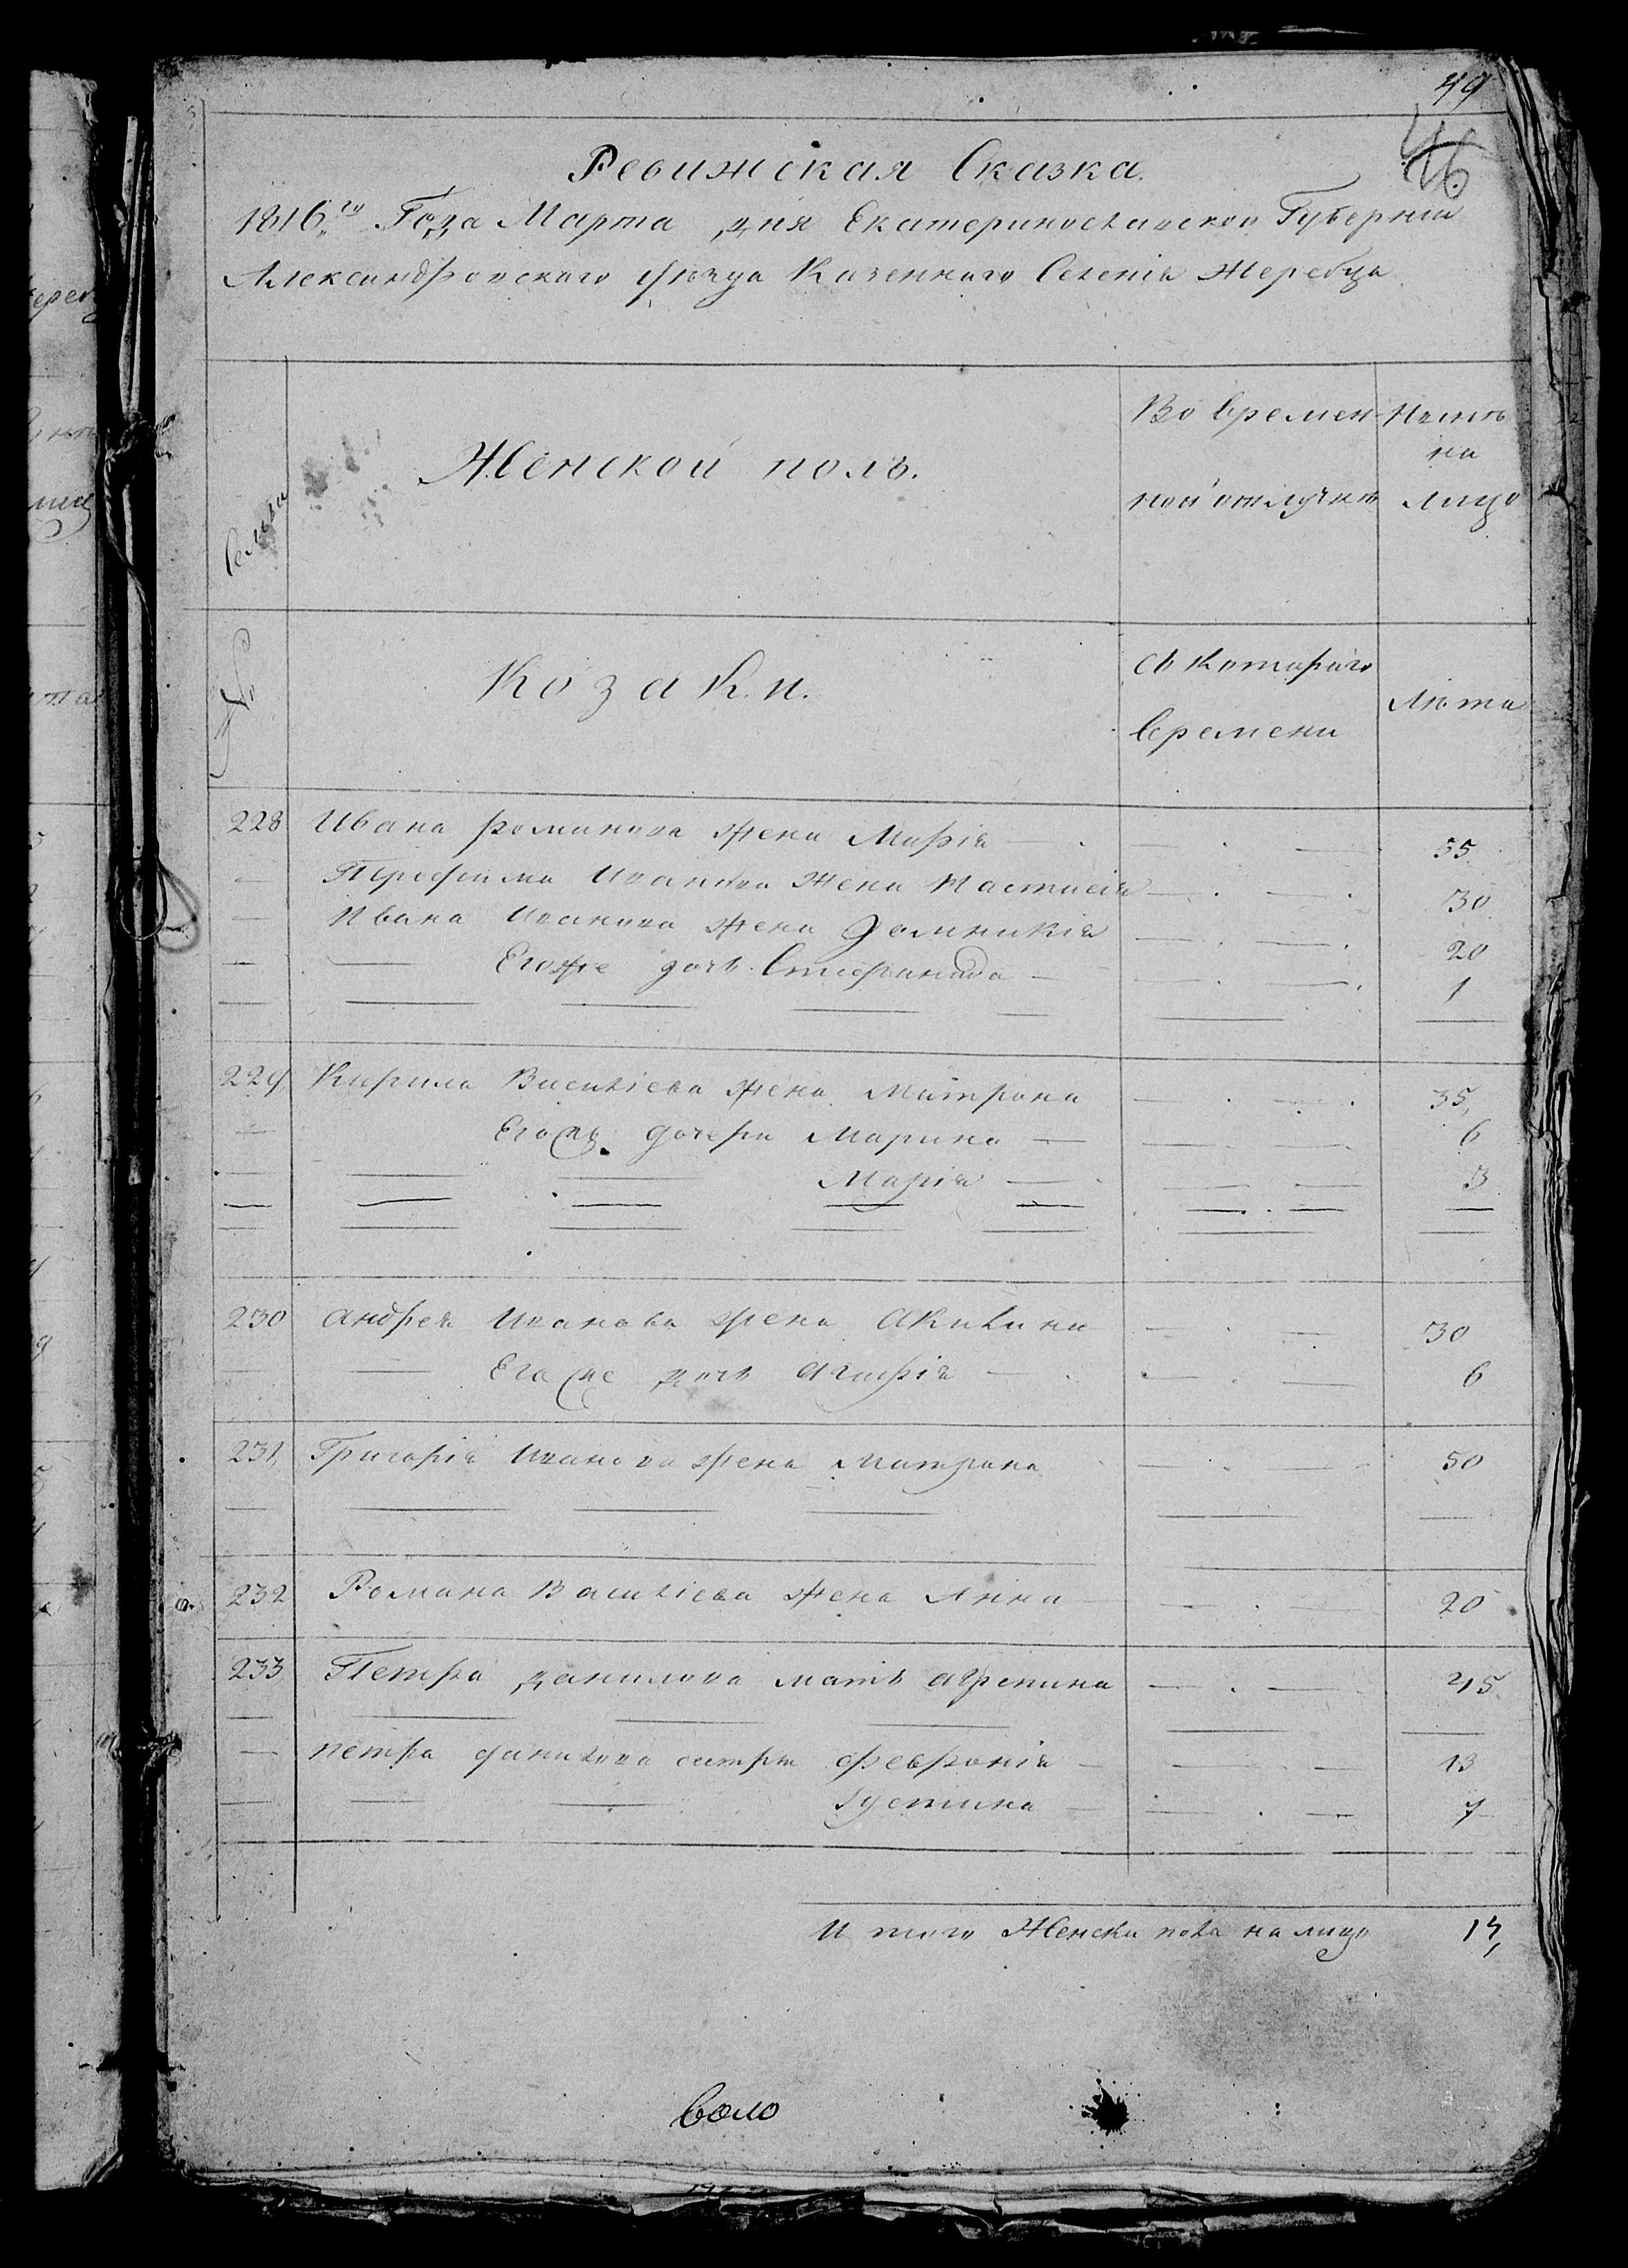 49
46
Ревижская Сказка.
1816го Года Марта дня Екатеринославской Губернии
Александровского уезда Казенного Селенія Жеребца
Женской полъ.
Во времен
ной отлучкѣ
Нынѣ
на
лицо
Семьи
Козаки.
№
съ котораго
времени
Лѣта
228 Ивана романова жена Марія — 55
Трофима Иванова жена Настасія — 30
Ивана Иванова жена Домникія — 20
— Егоже дочь — 1
229 Кирила Василіева жена Матрона — 35,
Егожъ дочери Марина — 6
Марія — 3
230 Андрея Иванова жена Акилина — 30
— Егоже дочь Агафія — 6
231, Григорія Иванова жена Матрона — 50
232 Романа Василіева жена Анна — 20
233 Петра данилова мать агрепина — 45
петра данилова сестры февронія — 13
Iустина — 7
И того Женска пола на лицо 14,
воло